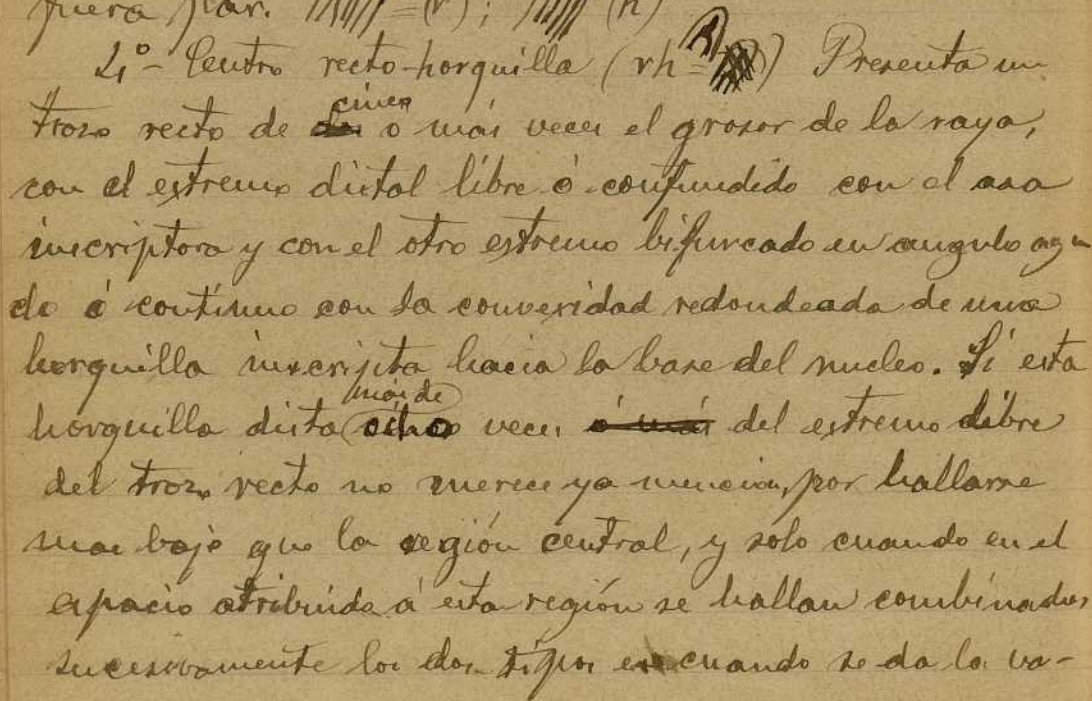 fuera par. = (r) ; (h)
4º - Centro recto-horquilla (rh = ) Presenta un
trozo recto de cinco ó más veces el grosor de la raya,
con el estremo distal libre ó confundido con el asa
inscriptora y con el otro estremo bifurcado en angulo agu
do ó contínuo con la convexidad redondeada de una
horquilla inscripta hacia la base del nucleo. Si esta
horquilla dista más de ocho veces ó más del estremo libre
del trozo recto no merece ya mencion, por hallarse
mas bajo que la región central, y solo cuando en el
espacio atribuido á esta región se hallan combinados
sucesivamente los dos tipos es cuando se da la va-